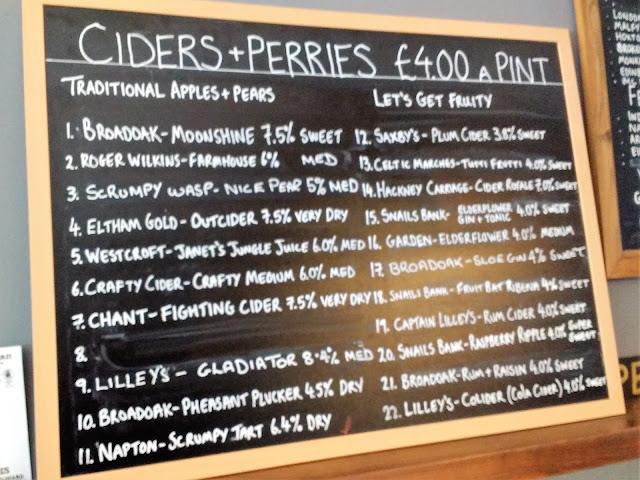 CIDERS + PERRIES £4.00 A PINT
TRADITIONAL APPLES + PEARS
1. BROADOAK - MOONSHINE 7.5% SWEET
2. ROGER WILKINS - FARMHOUSE 6% MED
3. SCRUMPY WASP - NICE PEAR 5% MED
4. ELTHAM GOLD - OUTCIDER 7.5% VERY DRY
5. WESTCROFT - JANET'S JUNGLE JUICE 6.0% MED
6. CRAFTY CIDER - CRAFTY MEDIUM 6.0% MED
7. CHANT - FIGHTING CIDER 7.5% VERY DRY
8.
9. LILLEY'S - GLADIATOR 8.4% MED
10. BROADOAK - PHEASANT PLUCKER 4.5% DRY
11. NAPTON - SCRUMPY TART 6.4% DRY
LET'S GET FRUITY
12. SAXBY'S - PLUM CIDER 3.8% SWEET
13. CELTIC MARCHES - TUTTI FRUTTI 4.0% SWEET
14. HACKNEY CARRIAGE - CIDER ROYALE 7.0% SWEET
15. SNAILS BANK - ELDERFLOWER GIN + TONIC 4.0% SWEET
16. GARDEN - ELDERFLOWER 4.0% MEDIUM
17. BROADOAK - SLOE GIN 4% SWEET
18. SNAILS BANK - FRUIT BAT 4% SWEET
19. CAPTAIN LILLEY'S - RUM CIDER 4.0% SWEET
20. SNAILS BANK - RASPBERRY RIPPLE 4.0% SUPER SWEET
21. BROADOAK - RUM + RAISIN 4.0% SWEET
22. LILLEY'S - COLIDER (Cola Cider) 4.0% SWEET